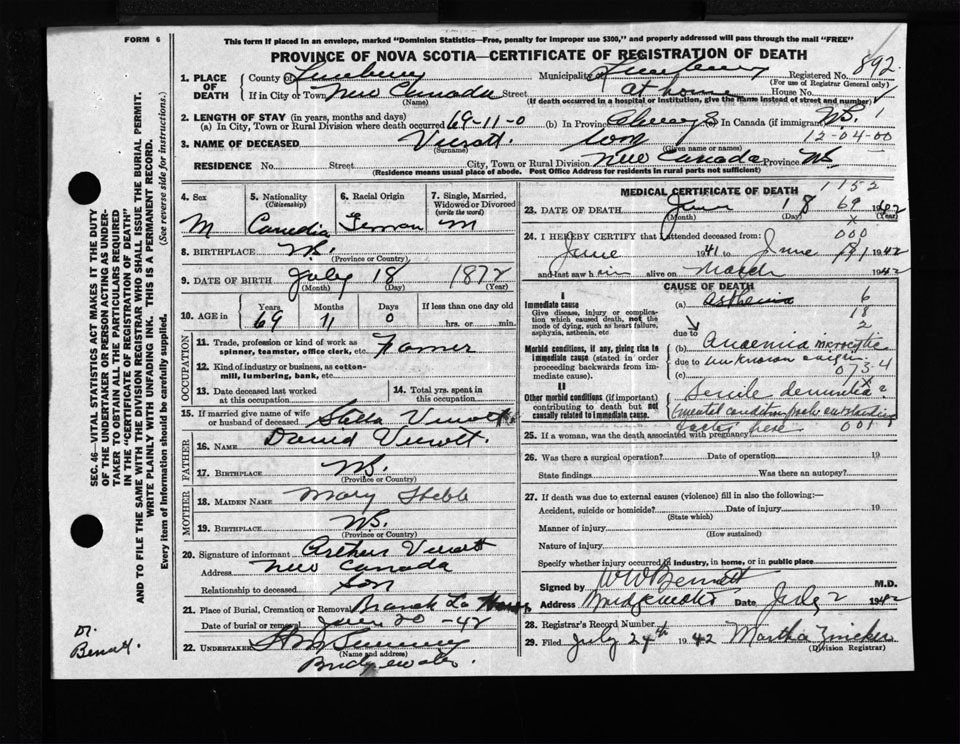 FORM 6
This form if placed in an envelope, marked "Dominion Statistics—Free, penalty for improper use $300," and properly addressed will pass through the mail "FREE"
PROVINCE OF NOVA SCOTIA—CERTIFICATE OF REGISTRATION OF DEATH
892
1. PLACE OF DEATH
County of Lunenburg Municipality of Lunenburg Registered No.
(For use of Registrar General only)
If in City or Town New Canada Street at home House No.
(Name) (If death occurred in a hospital or institution, give the name instead of street and number)
2. LENGTH OF STAY (in years, months and days)
(a) In City, Town or Rural Division where death occurred 69-11-0 (b) In Province Always In Canada (if immigrant) N.S. 1
12-04-00
3. NAME OF DECEASED
(Surname) (Given name or names)
RESIDENCE No. Street City, Town or Rural Division New Canada Province N.S.
(Residence means usual place of abode. Post Office Address for residents in rural parts not sufficient)
4. Sex M
5. Nationality (Citizenship) Canadia
6. Racial Origin German
7. Single, Married, Widowed or Divorced (write the word) M
8. BIRTHPLACE N.S.
(Province or Country)
9. DATE OF BIRTH July 18 1872
(Month) (Day) (Year)
10. AGE in Years 69 Months 11 Days 0 If less than one day old hrs. or min.
OCCUPATION
11. Trade, profession or kind of work as spinner, teamster, office clerk, etc. Farmer
12. Kind of industry or business, as cotton-mill, lumbering, bank, etc.
13. Date deceased last worked at this occupation
14. Total yrs. spent in this occupation
15. If married give name of wife or husband of deceased Stella
FATHER
16. NAME David
17. BIRTHPLACE N.S.
(Province or Country)
MOTHER
18. MAIDEN NAME Mary
19. BIRTHPLACE N.S.
(Province or Country)
20. Signature of informant Arthur
Address New Canada
Relationship to deceased Son
21. Place of Burial, Cremation or Removal Branch La Have
Date of burial or removal June 20 -42
22. UNDERTAKER
(Name and address)
Bridgewater
MEDICAL CERTIFICATE OF DEATH
1152
23. DATE OF DEATH June 18 69 1942
(Month) (Day) (Year)
000
24. I HEREBY CERTIFY that I attended deceased from:
June 1941 to June 1942
and last saw him alive on March 1942
CAUSE OF DEATH
I
Immediate cause
Give disease, injury or complication which caused death, not the mode of dying, such as heart failure, asphyxia, asthenia, etc
(a) asthenia 6
18
2
due to
Morbid conditions, if any, giving rise to immediate cause (stated in order proceeding backwards from immediate cause).
(b) Anaemia microcytic
due to unknown origin
(c) 073-4
II
Other morbid conditions (if important) contributing to death but not causally related to immediate cause.
Senile dementia
001
25. If a woman, was the death associated with pregnancy?
26. Was there a surgical operation? Date of operation 19
State findings Was there an autopsy?
27. If death was due to external causes (violence) fill in also the following:—
Accident, suicide or homicide? Date of injury 19
(State which)
Manner of injury
(How sustained)
Nature of injury
Specify whether injury occurred in industry, in home, or in public place
Signed by W W Bennett M.D.
Address Bridgewater Date July 2 1942
28. Registrar's Record Number
29. Filed July 24th 1942 Martha Zincker
(Division Registrar)
SEC. 46—VITAL STATISTICS ACT MAKES IT THE DUTY
OF THE UNDERTAKER OR PERSON ACTING AS UNDER-
TAKER TO OBTAIN ALL THE PARTICULARS REQUIRED
IN THE "CERTIFICATE OF REGISTRATION OF DEATH"
AND TO FILE THE SAME WITH THE DIVISION REGISTRAR WHO SHALL ISSUE THE BURIAL PERMIT.
WRITE PLAINLY WITH UNFADING INK. THIS IS A PERMANENT RECORD.
Every item of information should be carefully supplied. (See reverse side for instructions.)
Dr.
Bennett.